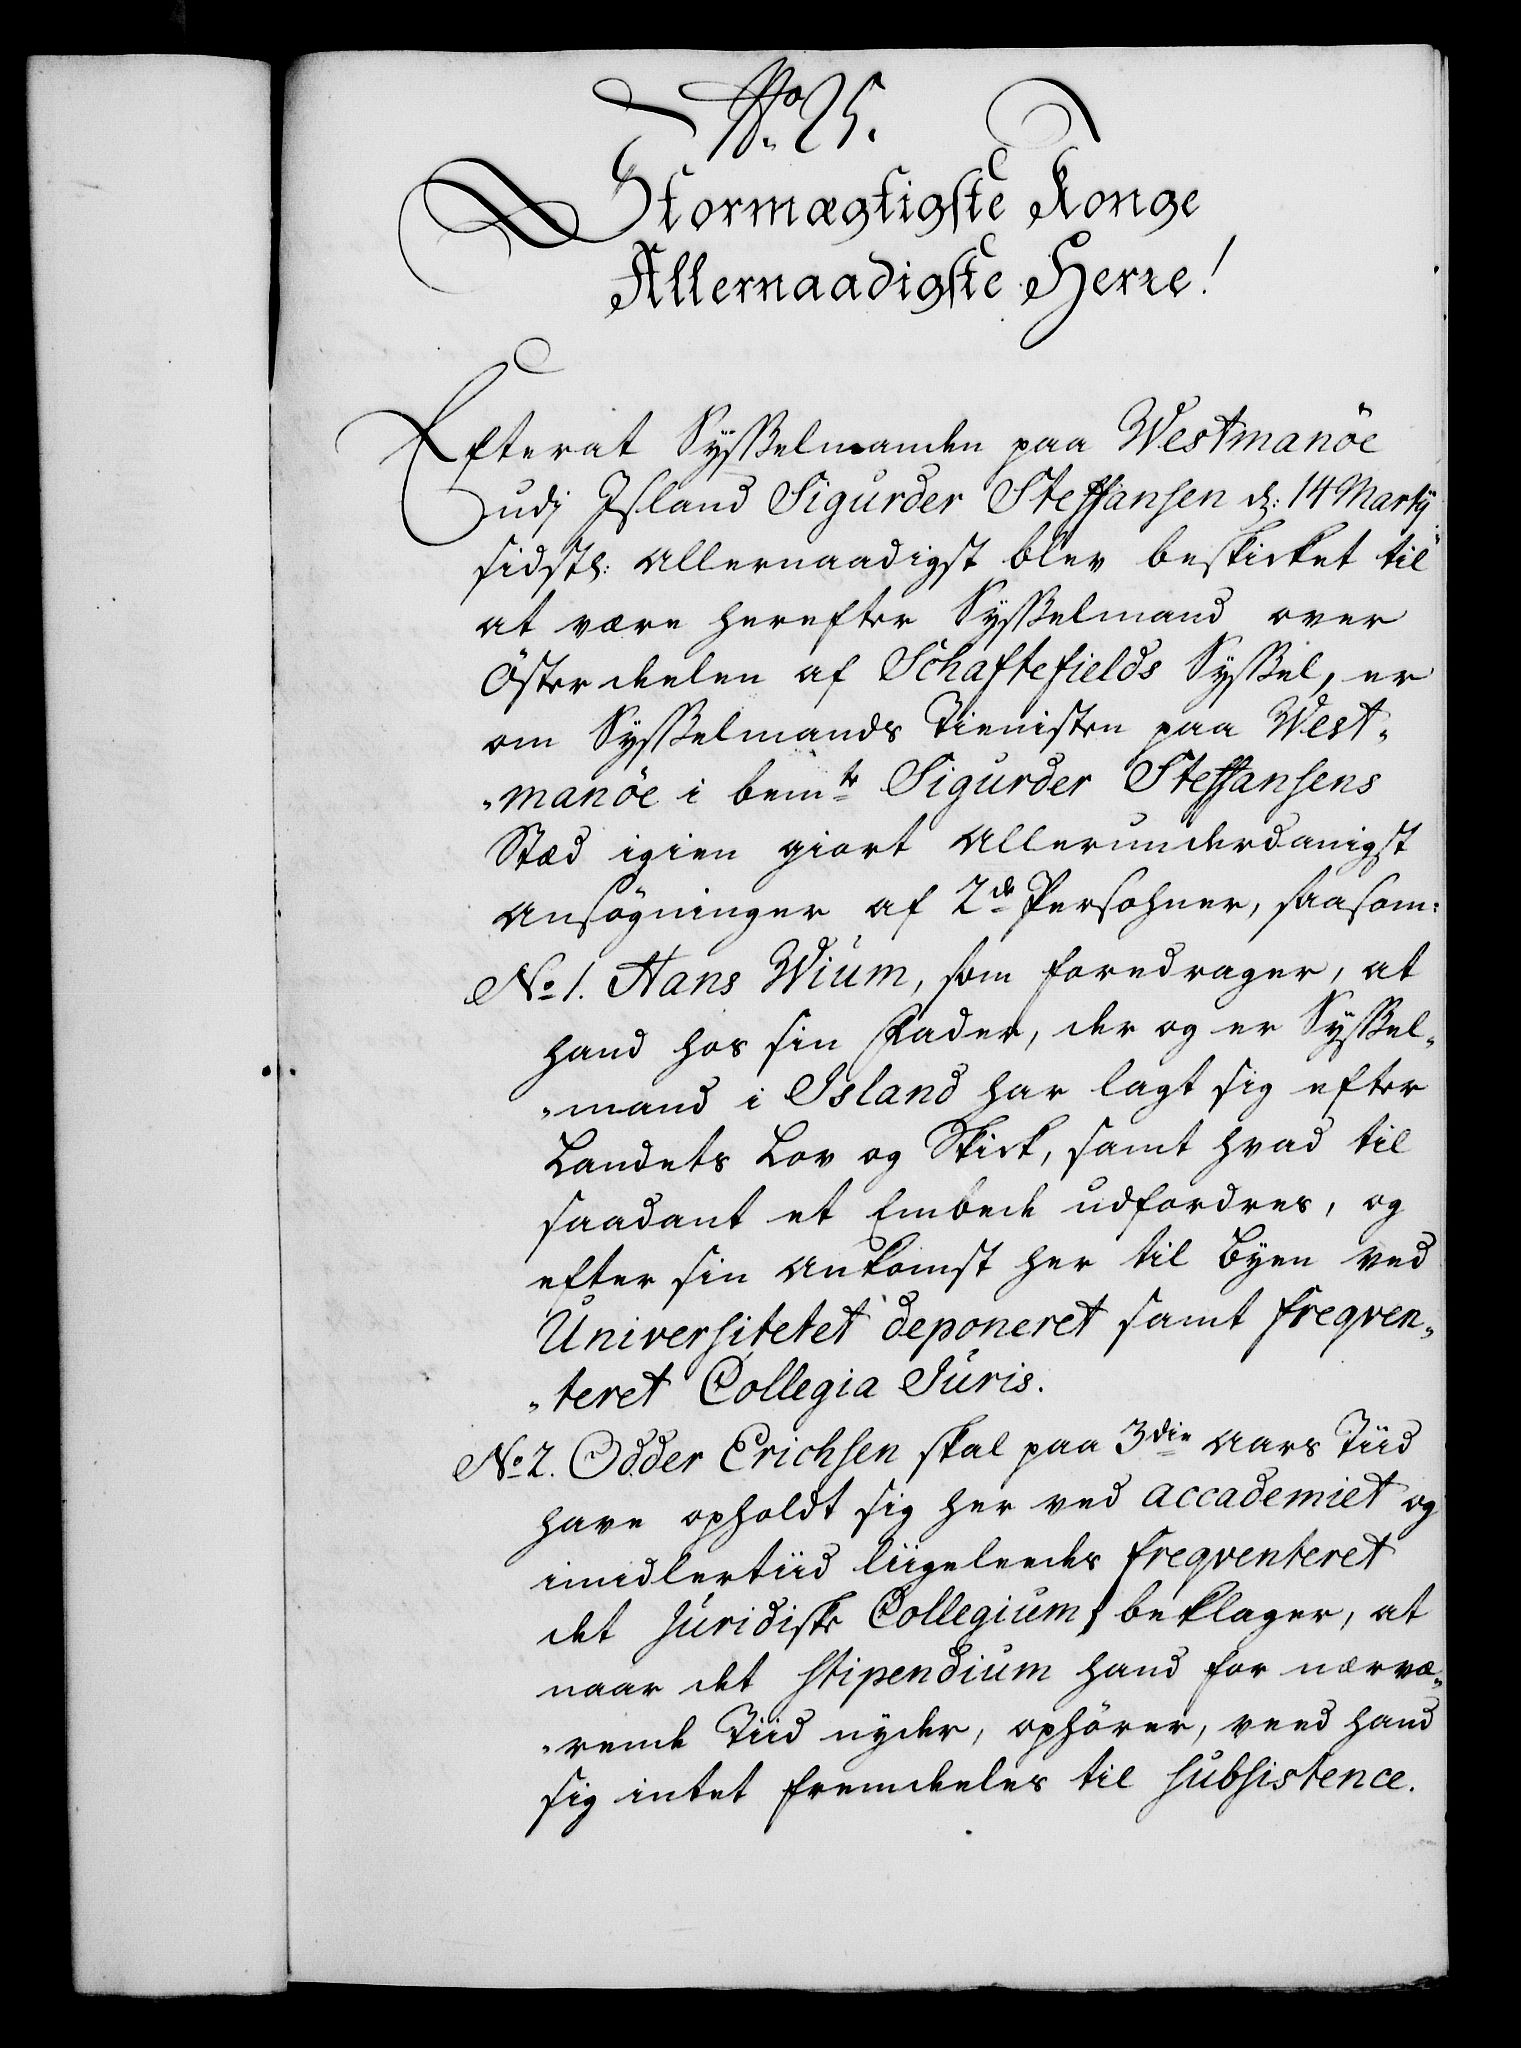 No. 25.
Stormægtigste Konge
Allernaadigste Herre!
Efterat Sysselmanden paa Westmanöe
udj Island Sigurder Steffansen d: 14 Martij
sidstl: Allernaadigst blev beskicket til
at være herefter Sysselmand over
Öster deelen af Schaftefields Syssel, er
om Sysselmands Tienisten paa West„
„manöe i bemte Sigurder Steffansens
Stæd igien giort Allerunderdanigst
Ansögninger af 2de Persohner, saasom:
No 1. Hans Wium, som foredrager, at
hand hos sin Fader, der og er Syssel„
„mand i Island har lagt sig efter
Landets Lov og Skick, samt hvad til
saadant et Embede udfordres, og
efter sin Ankomst her til Byen ved
Universitetet deponeret samt freqven„
„teret Collegia Juris.
No 2. Odder Erichsen skal paa 3die Aars Tiid
have opholdt sig her ved accademiet og
imidlertiid liigeleedes freqventeret
det Juridiske Collegium, beklager, at
naar det stipendium hand for nærvæ„
„rende Tiid nyder, ophörer, veed hand
sig intet fremdeeles til subsistence.